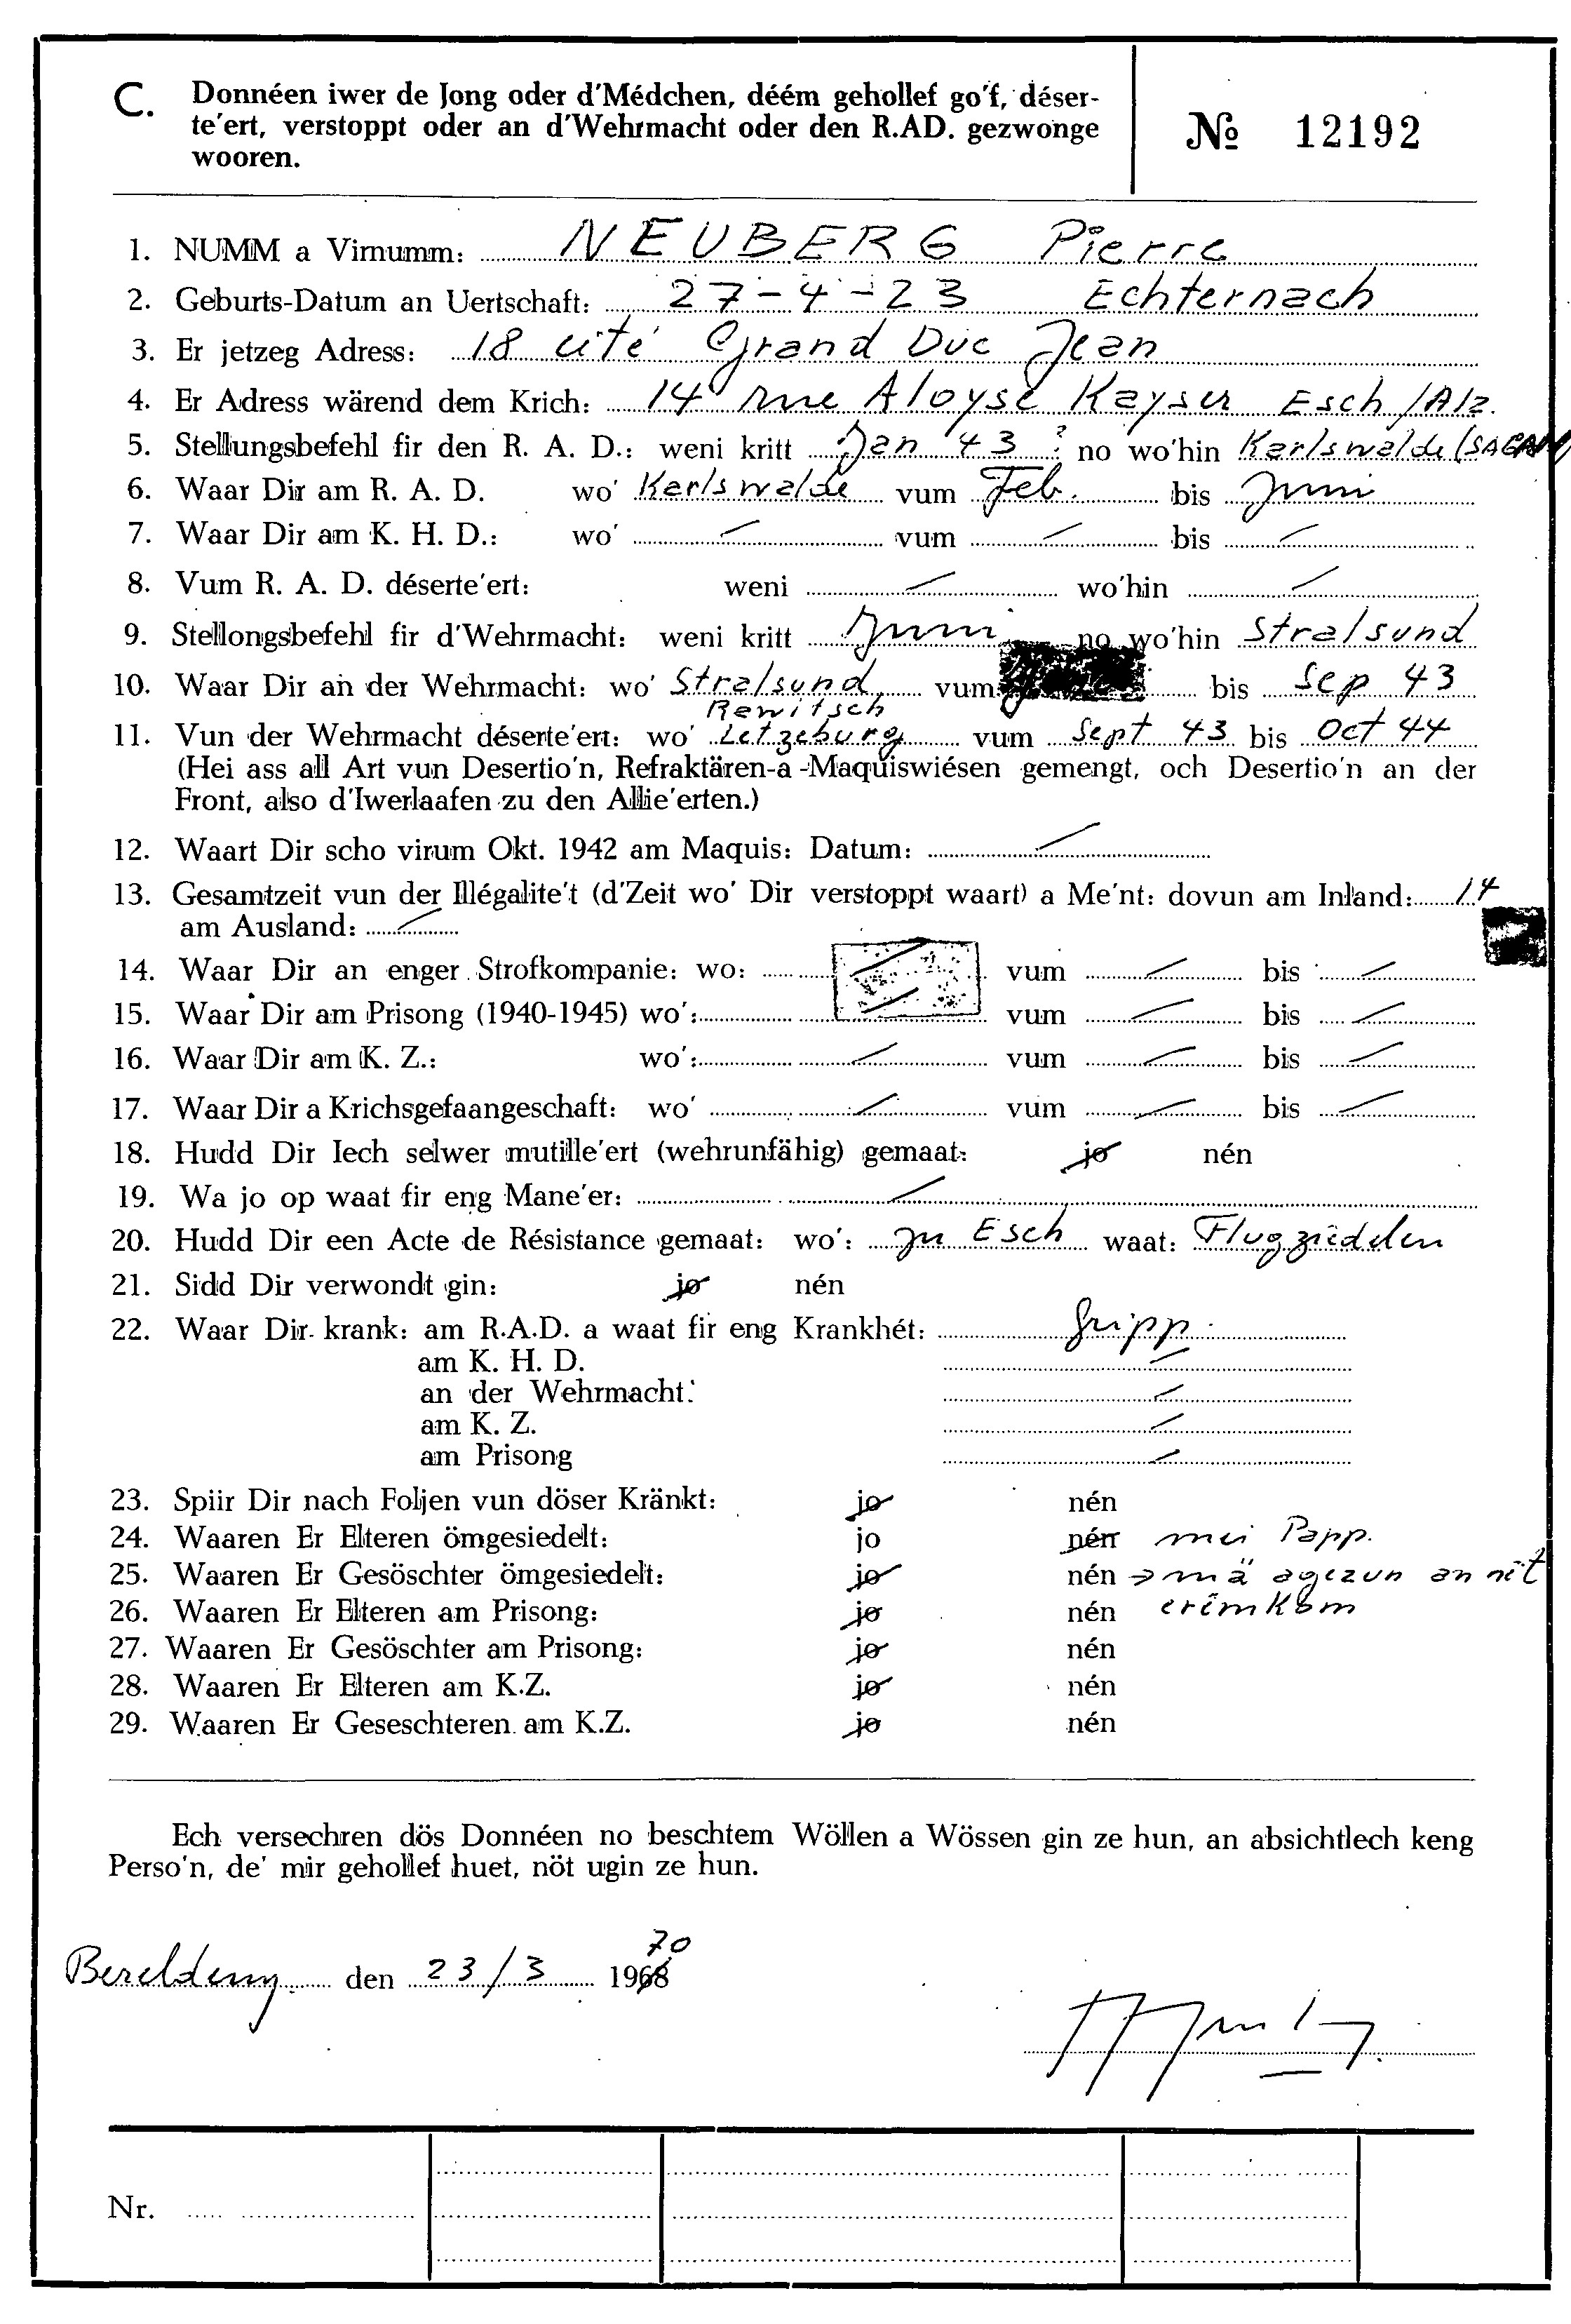 C. Donnéen iwer de Jong oder d'Médchen, déém gehollef go'f, déser-
te'ert, verstoppt oder an d'Wehrmacht oder den R.AD. gezwonge
wooren.
№ 12192
1. NUMM a Virnumm: NEUBERG Pierre
2. Geburts-Datum an Uertschaft: 27-4-23 Echternach
3. Er jetzeg Adress: 18 cité Grand Duc Jean
4. Er Adress wärend dem Krich: 14 rue Aloyse Kayser Esch/Alz.
5. Stellungsbefehl fir den R. A. D.: weni kritt Jan 43 ? no wo'hin Karlswalde (SAGAN)
6. Waar Dir am R. A. D. wo' Karlswalde vum Feb. bis Juni
7. Waar Dir am K. H. D.: wo' / vum / bis /
8. Vum R. A. D. déserte'ert: weni / wo'hin /
9. Stellongsbefehl fir d'Wehrmacht: weni kritt Juni no wo'hin Stralsund
10. Waar Dir an der Wehrmacht: wo' Stralsund vum bis Sep 43
Rewitsch
11. Vun der Wehrmacht déserte'ert: wo' Letzeburg vum Sept 43 bis Oct 44
(Hei ass all Art vun Desertio'n, Refraktären-a -Maquiswiésen gemengt, och Desertio'n an der
Front, also d'Iwerlaafen zu den Allie'erten.)
12. Waart Dir scho virum Okt. 1942 am Maquis: Datum: /
13. Gesamtzeit vun der Illégalite't (d'Zeit wo' Dir verstoppt waart) a Me'nt: dovun am Inland: 14
am Ausland: /
14. Waar Dir an enger Strofkompanie: wo: / vum / bis /
15. Waar Dir am Prisong (1940-1945) wo': / vum / bis /
16. Waar Dir am K. Z.: wo': / vum / bis /
17. Waar Dir a Krichsgefaangeschaft: wo' / vum / bis /
18. Hudd Dir Iech selwer mutille'ert (wehrunfähig) gemaat: jo nén
19. Wa jo op waat fir eng Mane'er: /
20. Hudd Dir een Acte de Résistance gemaat: wo': zu Esch waat: Flugziedelen
21. Sidd Dir verwondt gin: jo nén
22. Waar Dir krank: am R.A.D. a waat fir eng Krankhét: Gripp
am K. H. D. /
an der Wehrmacht: /
am K. Z. /
am Prisong /
23. Spiir Dir nach Foljen vun döser Kränkt: jo nén
24. Waaren Er Elteren ömgesiedelt: jo nén mei Papp.
25. Waaren Er Gesöschter ömgesiedelt: jo nén → mä agezun an nët
26. Waaren Er Elteren am Prisong: jo nén erëmkom
27. Waaren Er Gesöschter am Prisong: jo nén
28. Waaren Er Elteren am K.Z. jo nén
29. Waaren Er Geseschteren am K.Z. jo nén
Ech versechren dös Donnéen no beschtem Wöllen a Wössen gin ze hun, an absichtlech keng
Perso'n, de' mir gehollef huet, nöt ugin ze hun.
70
Bereldeng den 23/3 1968
Nr.